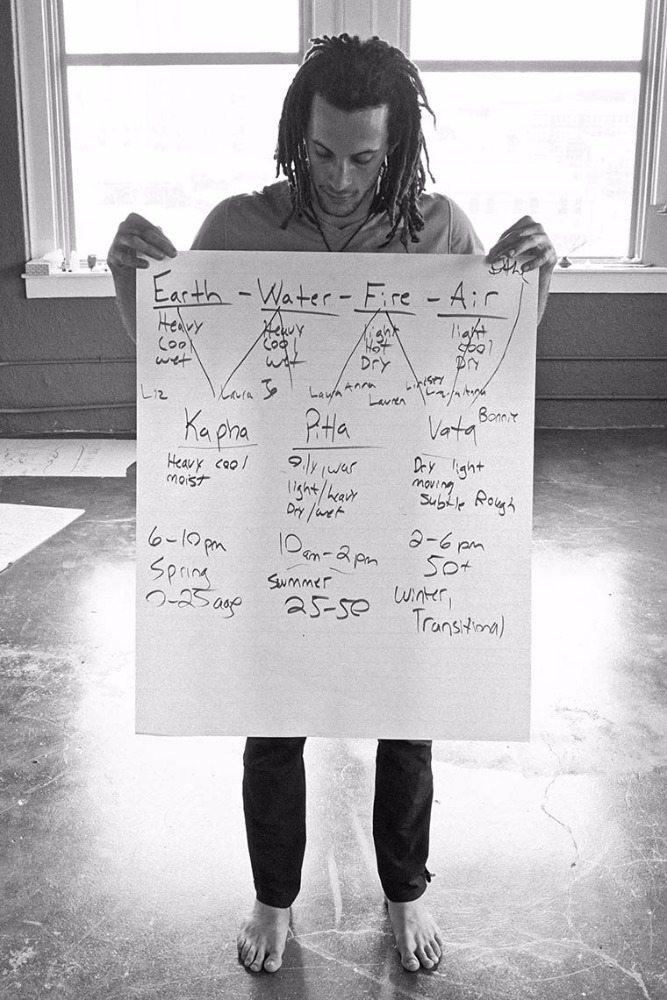 Ether
Earth - Water - Fire - Air
Heavy Heavy light light
Cool Cool Hot Cool
wet wet Dry Dry
Liz Laura Jo Laura Anna Lauren Lindsey
Bonnie
Kapha Pitta Vata
Heavy cool
moist
Oily, war
light/heavy
Dry/wet
Dry light
moving
Subtle Rough
6-10 pm 10am-2pm 2-6 pm
Spring Summer 50+
0-25 age 25-50 Winter,
Transitional